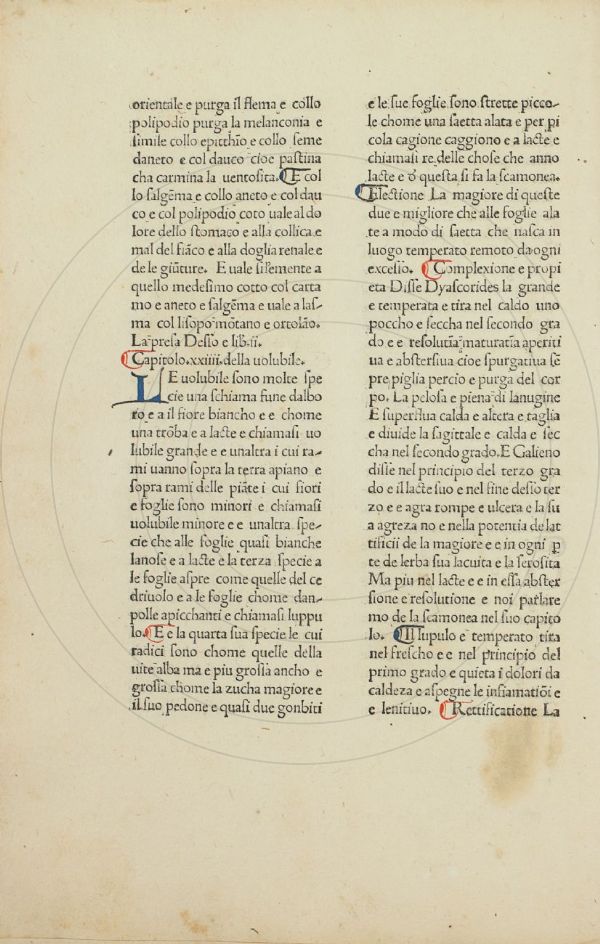 orientale e purga il flema e collo
polipodio purga la melanconia e
simile collo epitthio e collo seme
daneto e col dauco cioe pastina
cha carmina la uentosita. E col
lo salgēma e collo aneto e col dau
co e col polipodio coto uale al do
lore dello stomaco e alla collica e
mal del fiāco e alla doglia renale e
de le giūture. E uale sisemente a
quello medesimo cotto col carta
mo e aneto e salgēma e uale a las-
ma col lisopo mōtano e ortolāo.
La presa Desso e lib.ii.
Capitolo.xxiiii.della uolubile.
LE uolubile sono molte spe
cie una schiama fune dalbo
ro e a il fiore biancho e e chome
una trōba e a lacte e chiamasi uo
lubile grande e e unaltra i cui ra-
mi uanno sopra la terra apiano e
sopra rami delle piāte i cui fiori
e foglie sono minori e chiamasi
uolubile minore e e unaltra spe-
cie che alle foglie quasi bianche
lanose e a lacte e la terza specie a
le foglie aspre come quelle del ce
driuolo e a le foglie chome dan-
polle apicchanti e chiamasi luppu
lo. E e la quarta sua specie le cui
radici sono chome quelle della
uite alba ma e piu grossa ancho e
grossa chome la zucha magiore e
il suo pedone e quasi due gonbiti
e le sue foglie sono strette picco-
le chome una saetta alata e per pi
cola cagione caggiono e a lacte e
chiamasi re delle chose che anno
lacte e d questa si fa la scamonea.
Electione La magiore di queste
due e migliore che alle foglie ala
te a modo di saetta che nasca in
luogo temperato remoto da ogni
excesso. Complexione e propi
eta Disse Dyascorides la grande
e temperata e tira nel caldo uno
poccho e seccha nel secondo gra
do e e resolutia maturatia aperiti
ua e abstersiua cioe spurgatiua sē
pre piglia percio e purga del cor
po. La pelosa e piena di lanugine
E superflua calda e altera e taglia
e diuide la sagittale e calda e sec
cha nel secondo grado. E Galieno
disse nel principio del terzo gra
do e il lacte suo e nel fine desso ter
zo e e agra rompe e ulcera e la su
a agreza no e nella potentia de lat
tificii de la magiore e e in ogni p
te de lerba sua lacuita e la serosita
Ma piu nel lacte e e in essa abster
sione e resolutione e noi parlare
mo de la scamonea nel suo capito
lo. Il lupulo e temperato tira
nel frescho e e nel principio del
primo grado e quieta i dolori da
caldeza e aspegne le infiamatiōi e
e lenitiuo. Rettificatione La